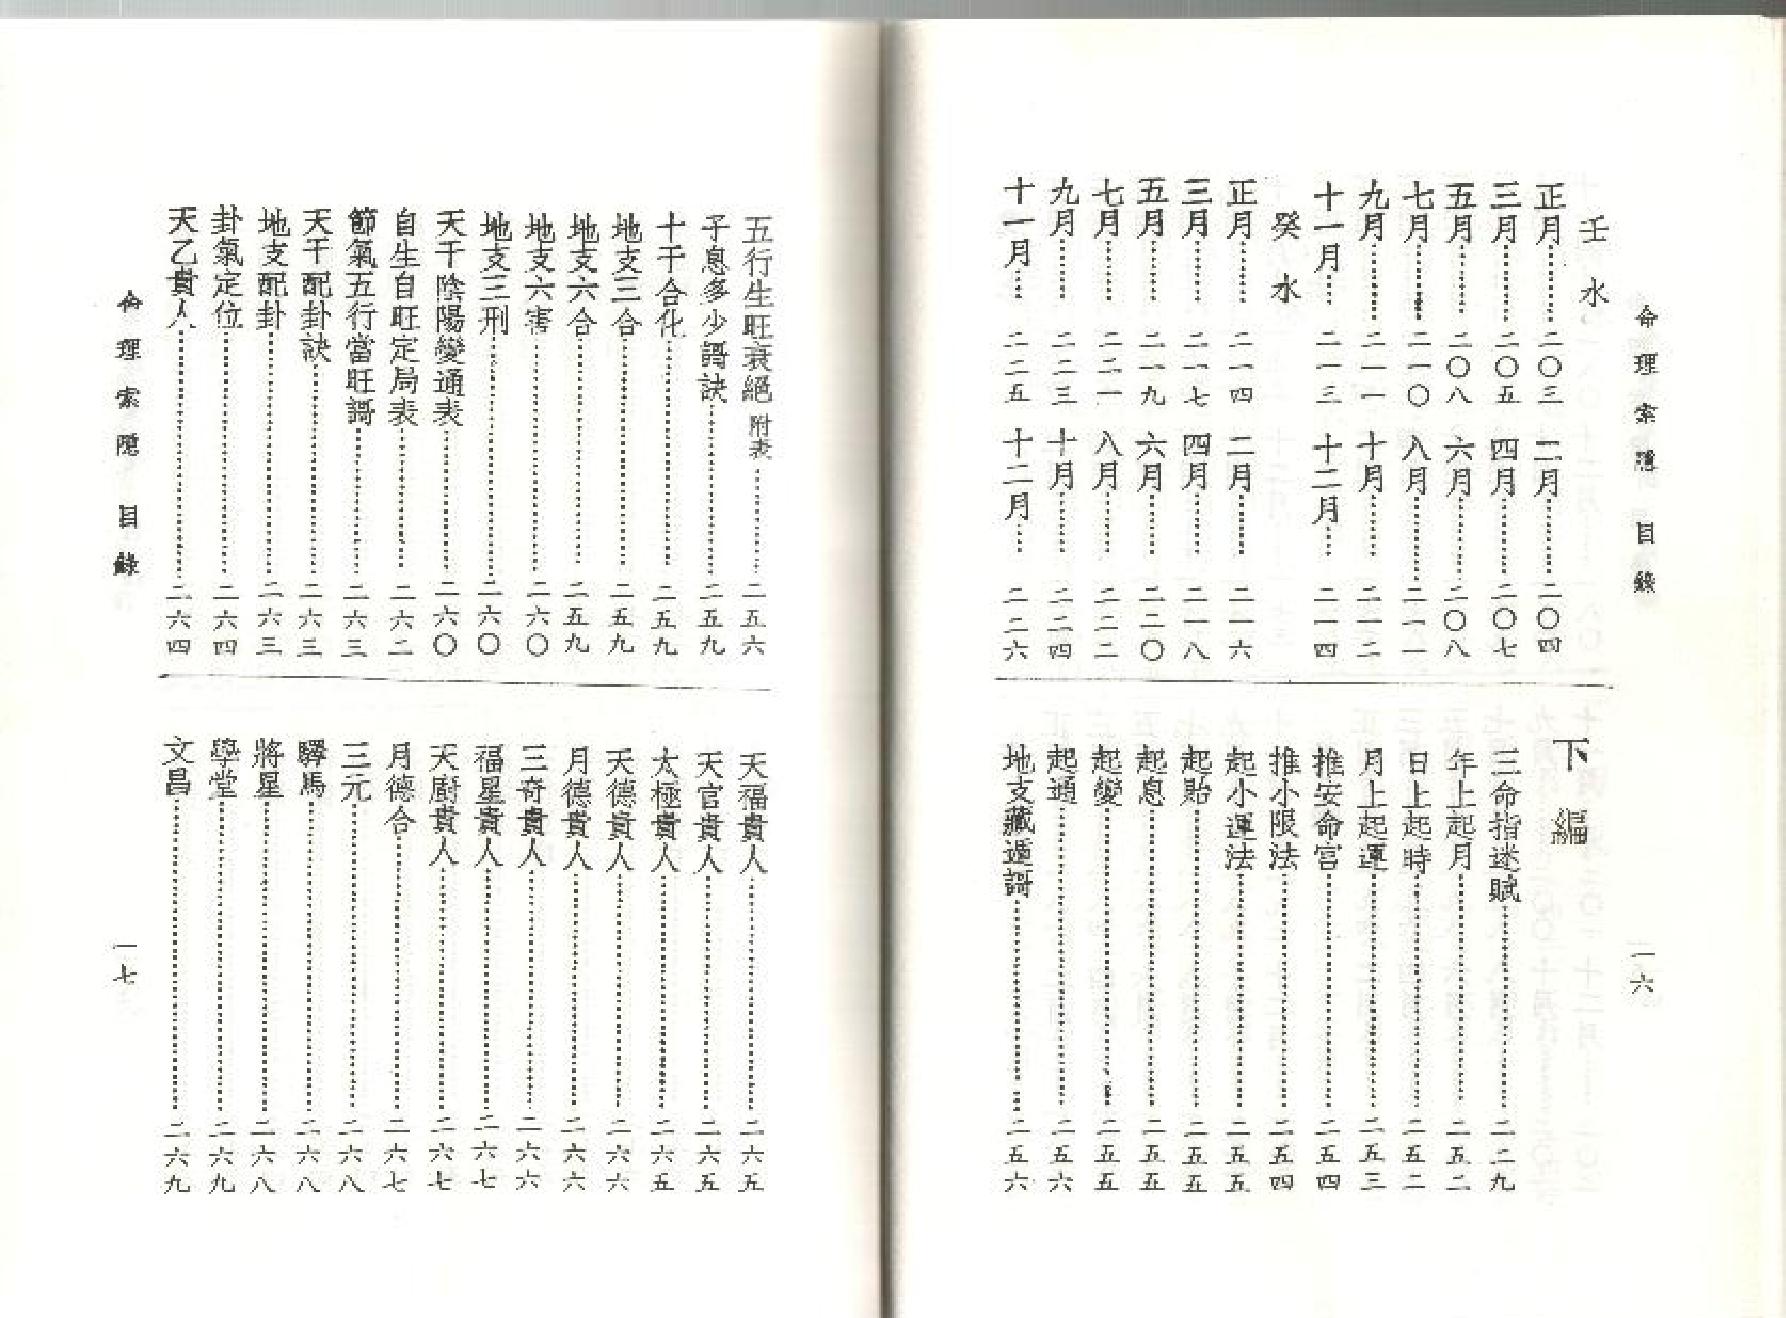 命理索隱 目錄
一六
壬水
正月……二〇三 二月……二〇四
三月……二〇五 四月……二〇七
五月……二〇八 六月……二〇八
七月……二一〇 八月……二一一
九月……二一一 十月……二一二
十一月……二一三 十二月……二一四
癸水
正月……二一四 二月……二一六
三月……二一七 四月……二一八
五月……二一九 六月……二二〇
七月……二二一 八月……二二二
九月……二二三 十月……二二四
十一月……二二五 十二月……二二六
下編
三命指迷賦……二二九
年上起月……二五二
日上起時……二五二
月上起運……二五三
推安命宮……二五四
推小限法……二五四
起小運法……二五五
起貽……二五五
起息……二五五
起變……二五五
起通……二五六
地支藏遁謌……二五六
五行生旺衰絕附表……二五六
子息多少謌訣……二五九
十干合化……二五九
地支三合……二五九
地支六合……二五九
地支六害……二六〇
地支三刑……二六〇
天干陰陽變通表……二六〇
自生自旺定局表……二六二
節氣五行當旺謌……二六三
天干配卦訣……二六三
地支配卦……二六三
卦氣定位……二六四
天乙貴人……二六四
天福貴人……二六五
天官貴人……二六五
太極貴人……二六五
天德貴人……二六六
月德貴人……二六六
三奇貴人……二六六
福星貴人……二六七
天廚貴人……二六七
月德合……二六七
三元……二六八
驛馬……二六八
將星……二六八
學堂……二六九
文昌……二六九
命理索隱 目錄
一七